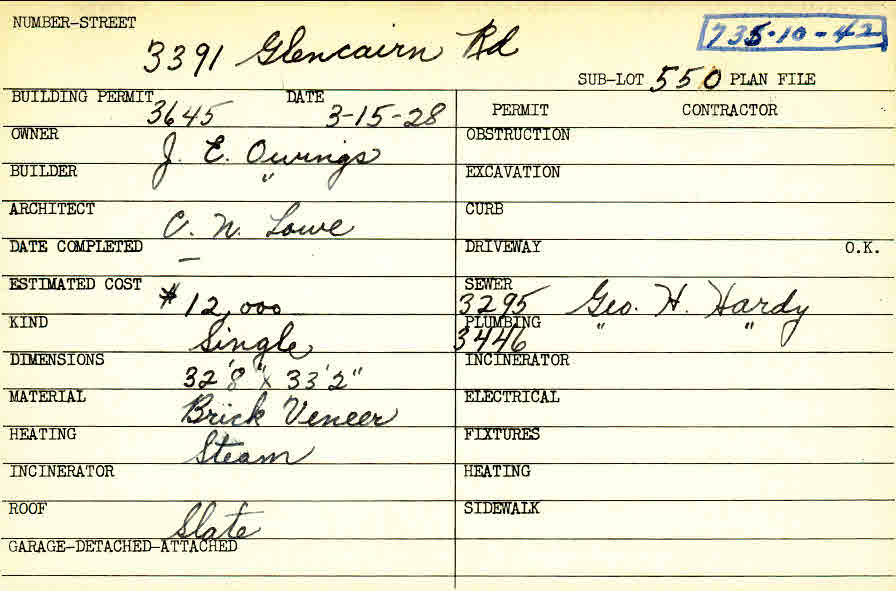 NUMBER-STREET
3391 Glencairn Rd
735-10-42
SUB-LOT 550 PLAN FILE
BUILDING PERMIT 3645 DATE 3-15-28
PERMIT CONTRACTOR
OWNER J. E. Owings
OBSTRUCTION
BUILDER "
EXCAVATION
ARCHITECT C. N. Lowe
CURB
DATE COMPLETED –
DRIVEWAY O.K.
ESTIMATED COST $12,000
SEWER 3295 Geo. H. Hardy
KIND Single
PLUMBING 3446 " "
DIMENSIONS 32'8" x 33'2"
INCINERATOR
MATERIAL Brick Veneer
ELECTRICAL
HEATING Steam
FIXTURES
INCINERATOR
HEATING
ROOF Slate
SIDEWALK
GARAGE-DETACHED-ATTACHED